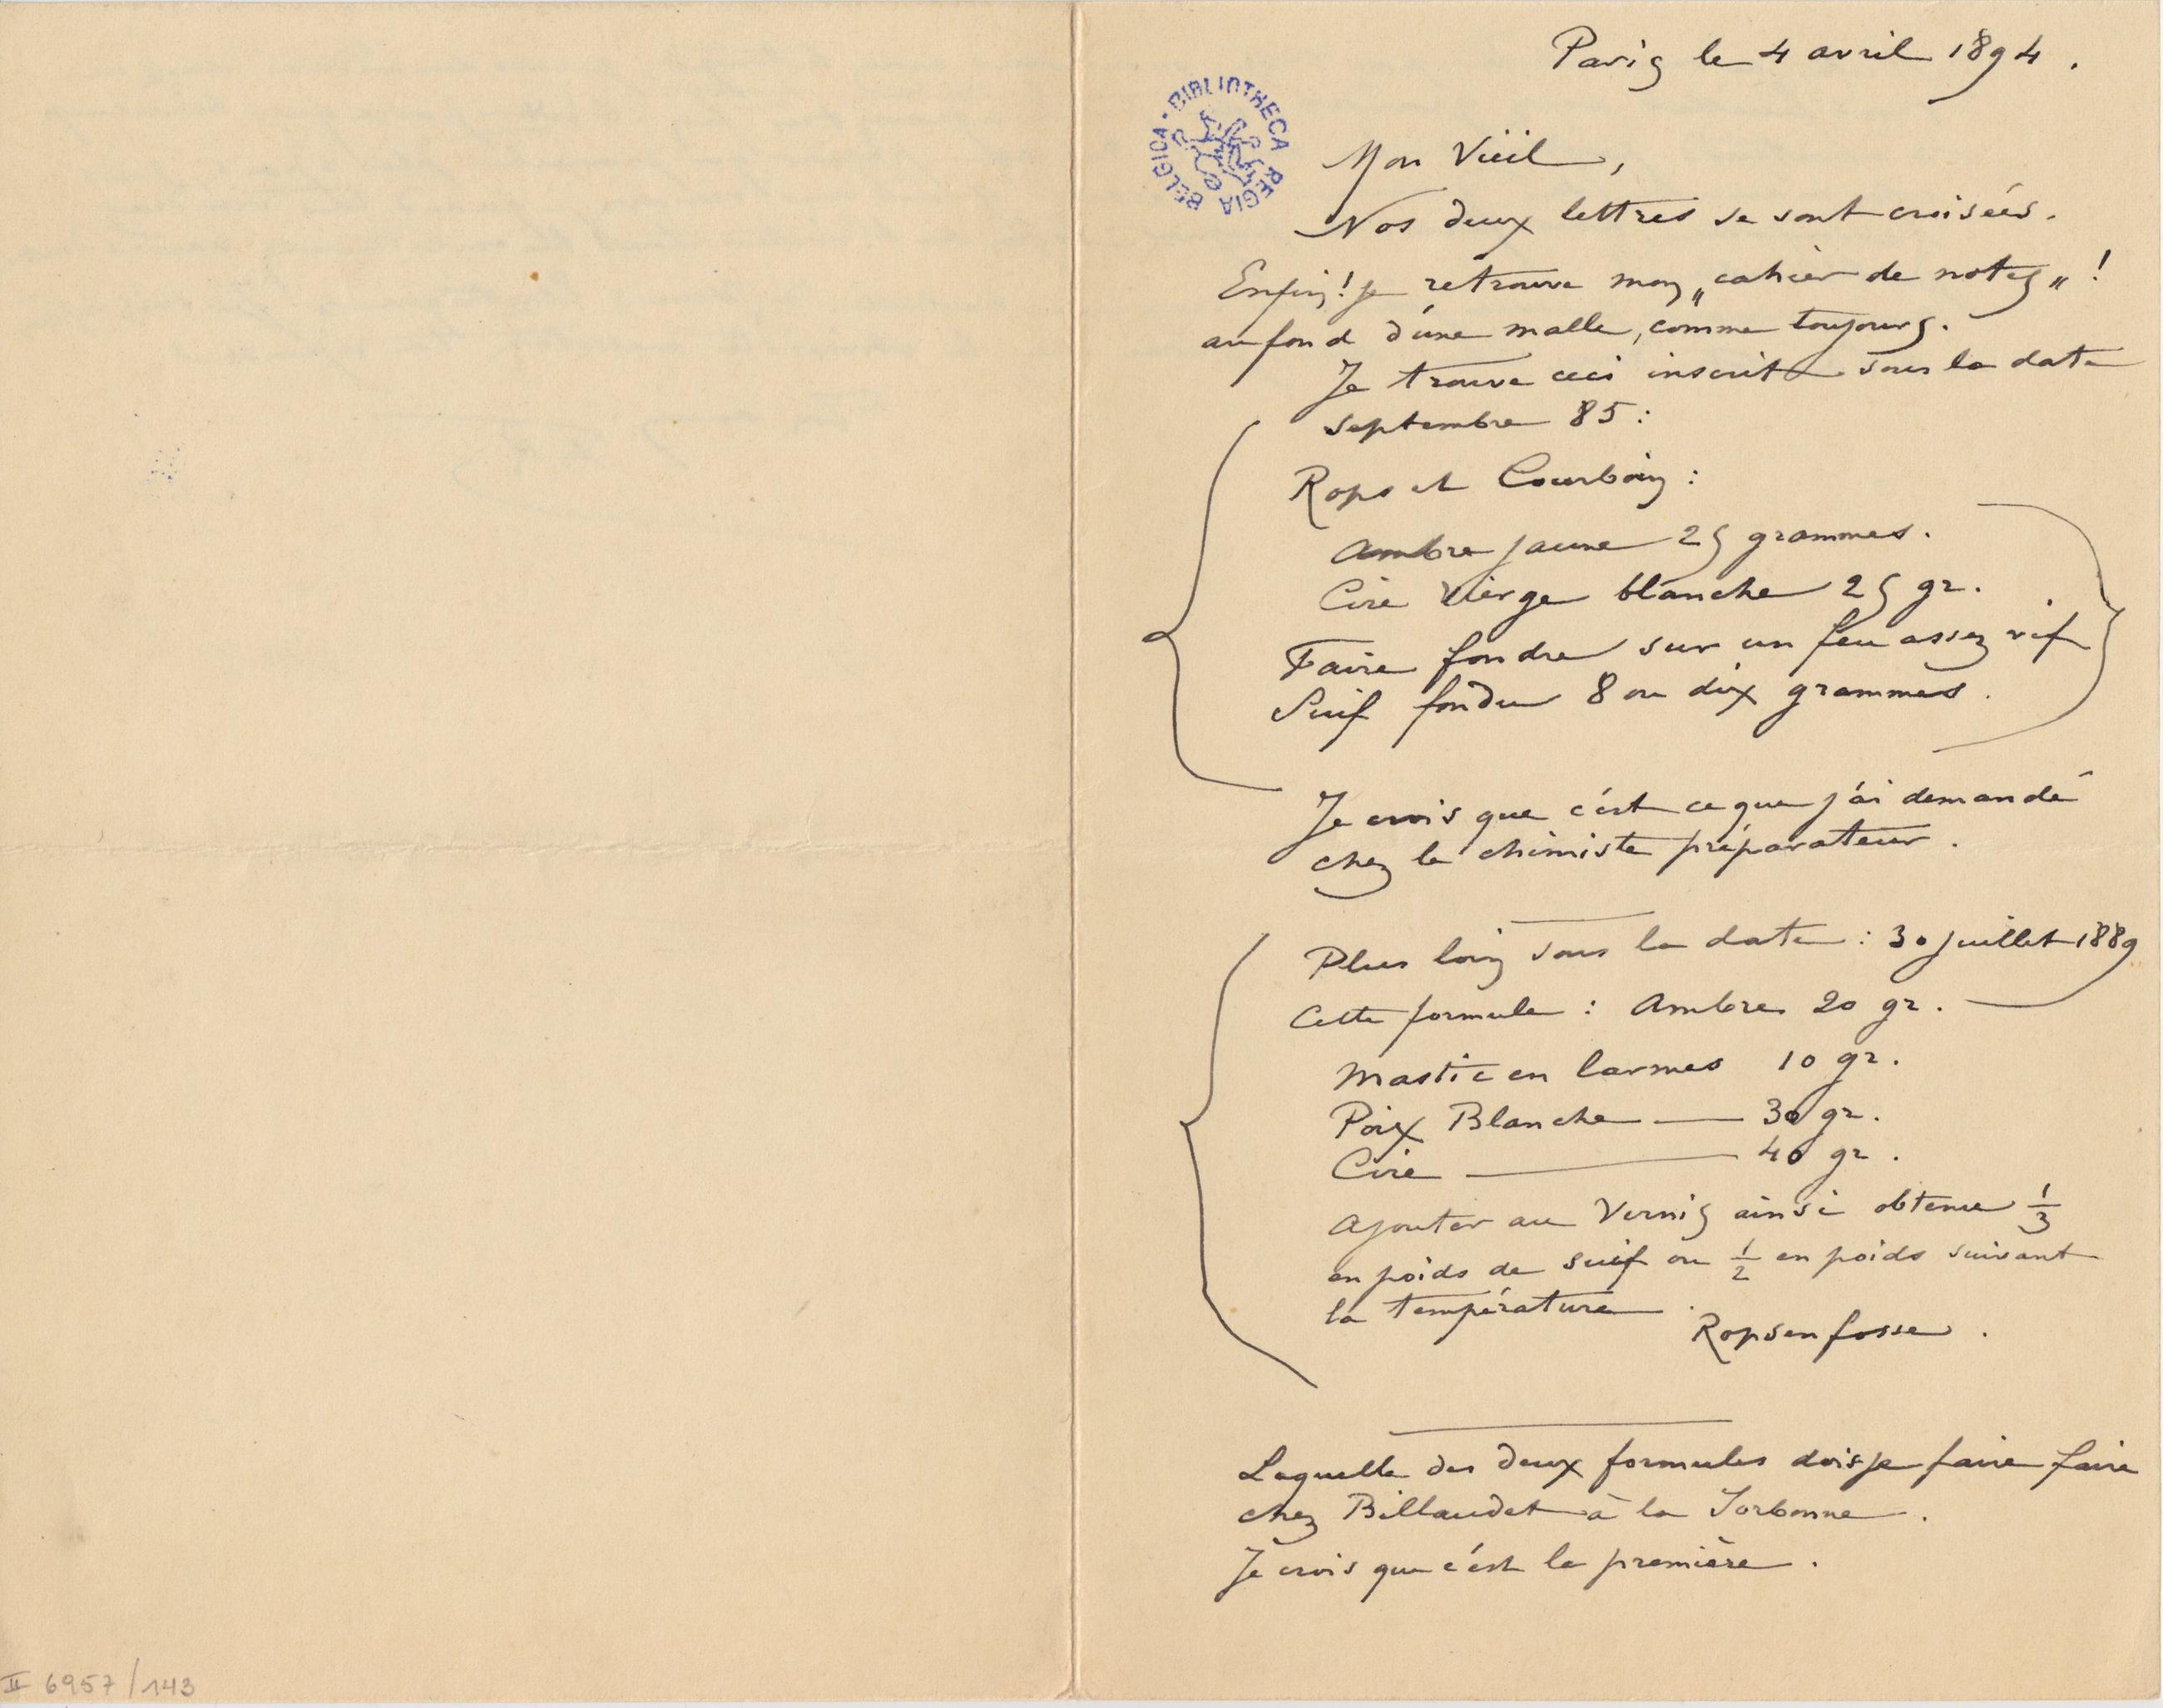 Paris le 4 avril 1894.
BIBLIOTHECA REGIA BELGICA
Mon Vieil,
Nos deux lettres se sont croisées.
Enfin! je retrouve mon „cahier de notes„!
au fond d'une malle, comme toujours.
Je trouve ceci inscrit sous la date
septembre 85:
Rops et Courboin:
Ambre jaune 25 grammes.
Cire Vierge blanche 25 gr.
Faire fondre sur un feu assez vif
Suif fondu 8 ou dix grammes.
Je crois que c'est ce que j'ai demandé
chez le chimiste préparateur.
Plus loin sous la date: 30 juillet 1889
Cette formule: Ambre 20 gr.
Mastic en larmes 10 gr.
Poix Blanche — 30 gr.
Cire — 40 gr.
Ajouter au Vernis ainsi obtenu 1/3
en poids de suif ou 1/2 en poids suivant
la température.
Ropsenfosse.
Laquelle des deux formules dois je faire faire
chez Billaudet à la Sorbonne.
Je crois que c'est la première.
II 6957/143